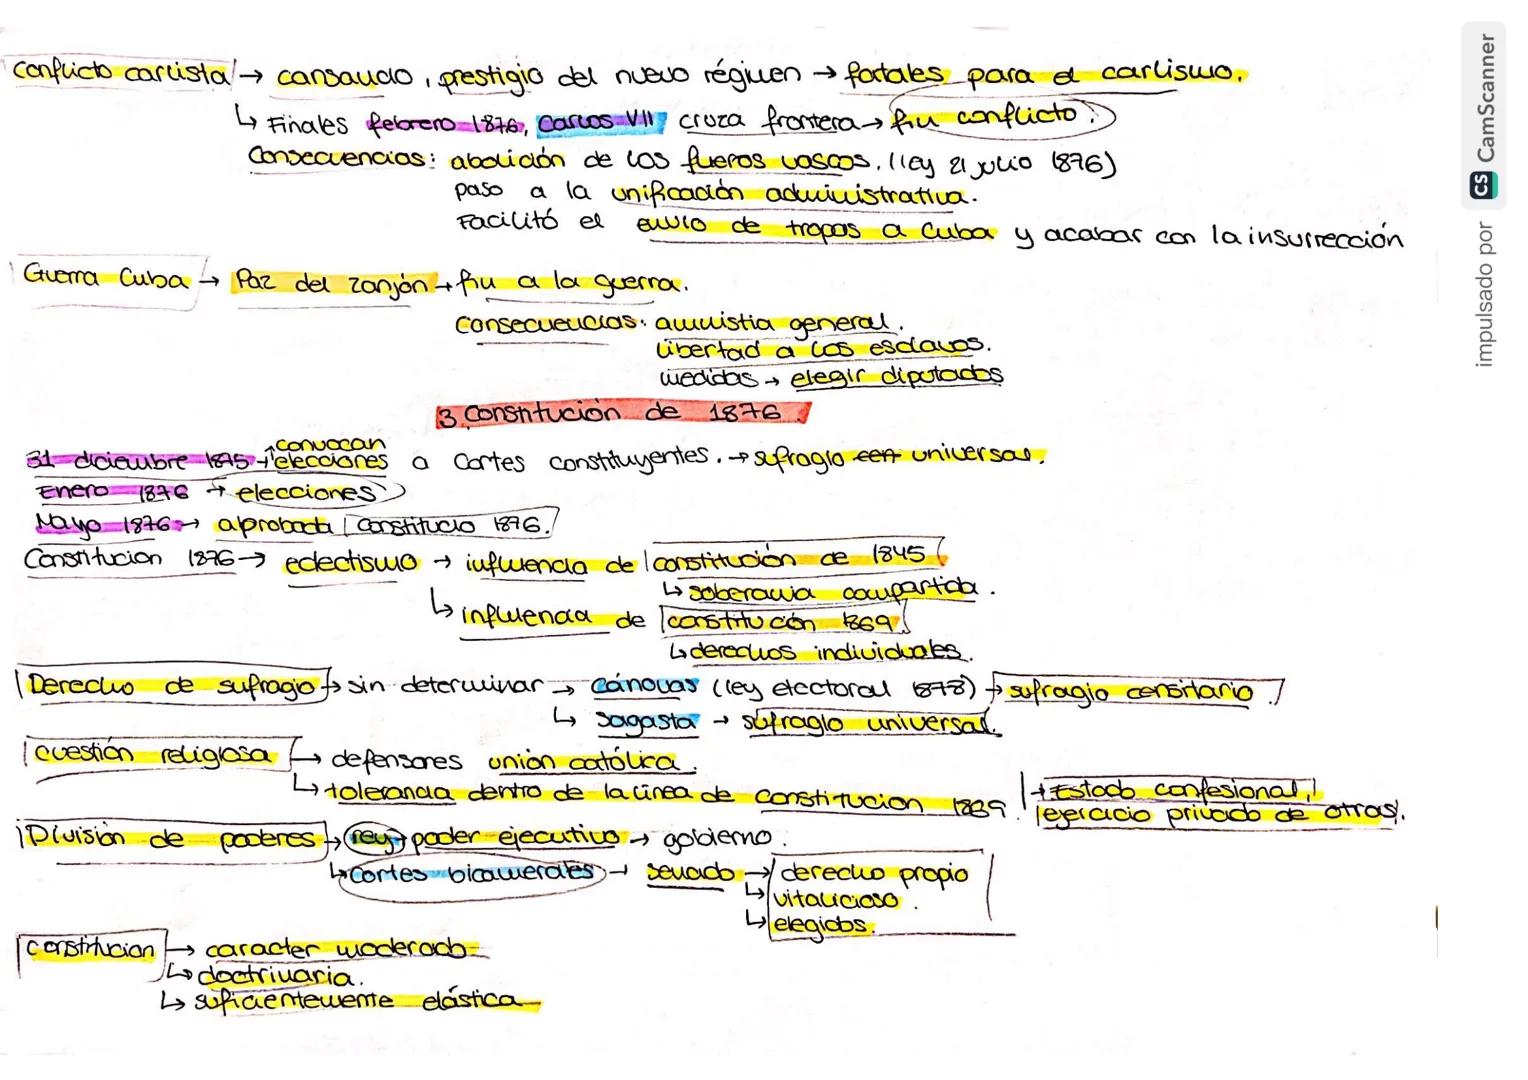 Conflicto carlista → cansancio, prestigio del nuevo régimen → fatales para el carlismo.
↳ Finales febrero 1876, Carlos VII cruza frontera → fin conflicto.
Consecuencias: abolición de los fueros vascos. (ley 21 julio 1876)
paso a la unificación administrativa.
Facilitó el envío de tropas a Cuba y acabar con la insurrección
Guerra Cuba → Paz del zanjón → fin a la guerra.
Consecuencias: amnistia general.
libertad a los esclavos.
medidas → elegir diputados
3. Constitución de 1876.
convocan
31 diciembre 1875 → elecciones a Cortes constituyentes. → sufragio cen universal.
Enero 1876 → elecciones
Mayo 1876 → aprobada Constitucio 1876.
Constitucion 1876 → eclectismo → influencia de constitución de 1845
↳ soberania compartida.
↳ influencia de constitución 1869
↳ derechos individuales.
Derecho de sufragio → sin determinar → Cánovas (ley electoral 1878) → sufragio censitario.
↳ Sagasta → sufragio universal.
Cuestión religiosa → defensores unión católica.
↳ tolerancia dentro de la linea de Constitucion 1869. → Estado confesional,
ejercicio privado de otras.
División de poderes → rey → poder ejecutivo → gobierno.
↳ Cortes bicamerales → senado → derecho propio
↳ vitalicioso.
↳ elegidos.
constitucion → caracter moderado
↳ doctrinaria.
↳ suficientemente elástica
impulsado por CS CamScanner